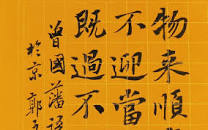 物来順
不迎當
既過不
曾國藩語
於京郭